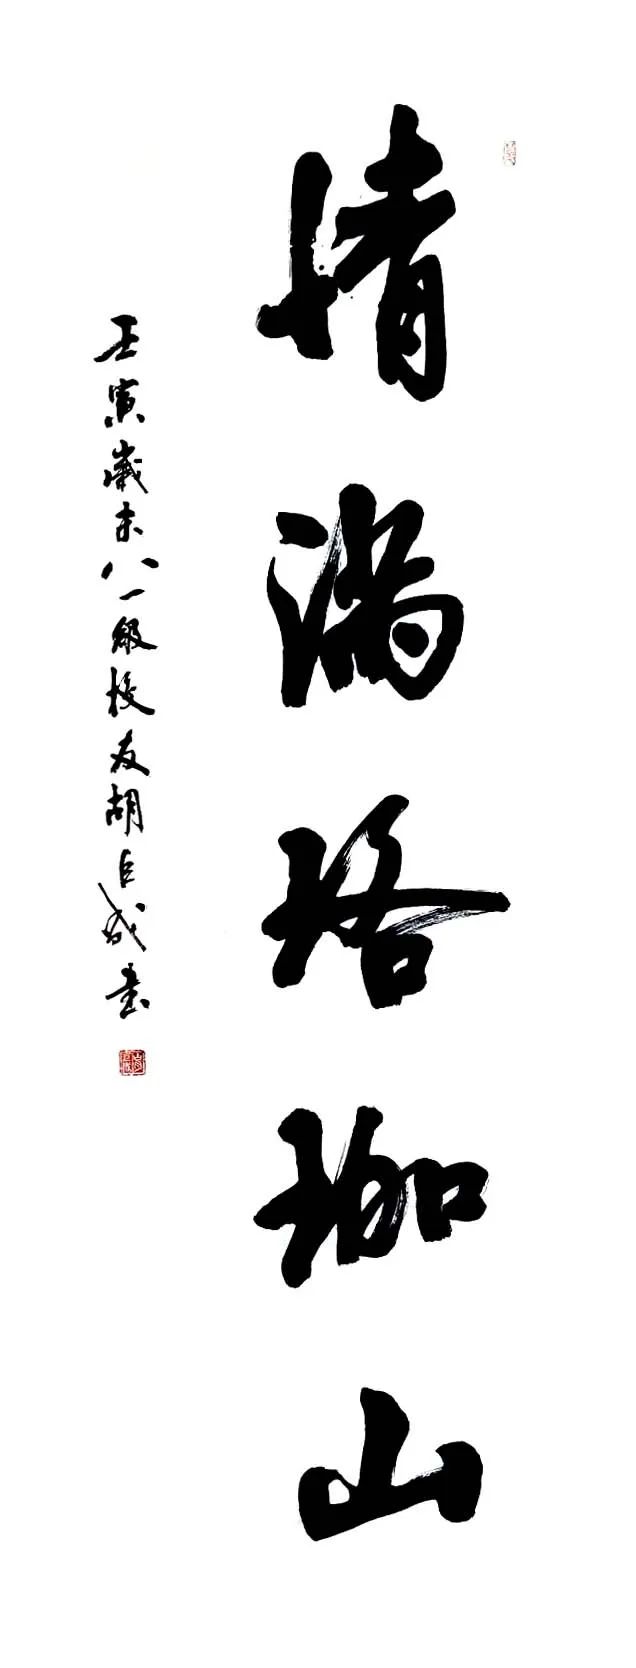 情满珞珈山
壬寅岁末八一级校友胡臣成书